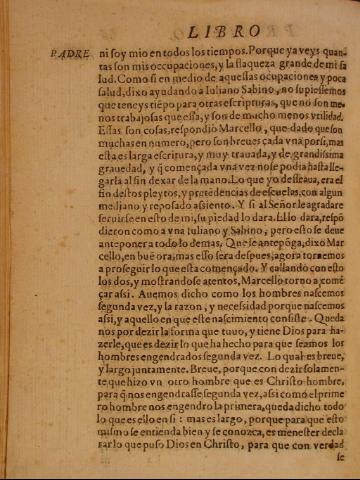 LIBRO
PADRE
ni soy mio en todos los tiempos. Porque ya veys quan-
tas son mis occupaciones, y la flaqueza grande de mi sa
lud. Como si en medio de aquestas ocupaciones y poca
salud, dixo ayudando a Iuliano Sabino, no supiessemos
que teneys tiẽpo para otras escripturas, que nó son me
nos trabajosas que esta, y son de mucho menos vtilidad.
Essas son cosas, respondio Marcello, que dado que son
muchas en numero, pero son breues cada vna por si, mas
esta es larga escritura, y muy trauada, y de grandissima
grauedad, y q̃ començada vna vez no se podia hasta lle-
garla al fin dexar de la mano. Lo que yo desseaua, era el
fin destos pleytos, y pretẽdencias de escuelas, con algun
mediano y reposado assiento. Y si al Señor le agradare
seruirse en esto de mi, su piedad lo dara. El lo dara, respõ
dieron como a vna Iuliano y Sabino, pero esto se deue
anteponer a todo lo demas. Que se antepõga, dixo Mar
cello, en buẽ ora, mas esso sera despues, agora tornemos
a proseguir lo que esta començado. Y callando con esto
los dos, y mostrandose atentos, Marcello torno a comẽ
çar assi. Auemos dicho como los hombres nascemos
segunda vez, y la razon, y necesidad porque nascemos
assi, y aquello en que este nascimiento consiste. Queda
nos por dezir la forma que tuuo, y tiene Dios para ha-
zerle, que es dezir lo que ha hecho para que seamos los
hombres engendrados segunda vez. Lo qual es breue,
y largo juntamente. Breue, porque con dezir solamen-
te que hizo vn otro hombre que es Christo hombre,
para q̃ nos engendrasse segunda vez, assi como el prime
ro hombre nos engendro la primera, queda dicho todo
lo que es ello en si: mas es largo, porque para que esto
mismo se entienda bien y se conozca, es menester decla
rar lo que puso Dios en Christo, para que con verdad
se